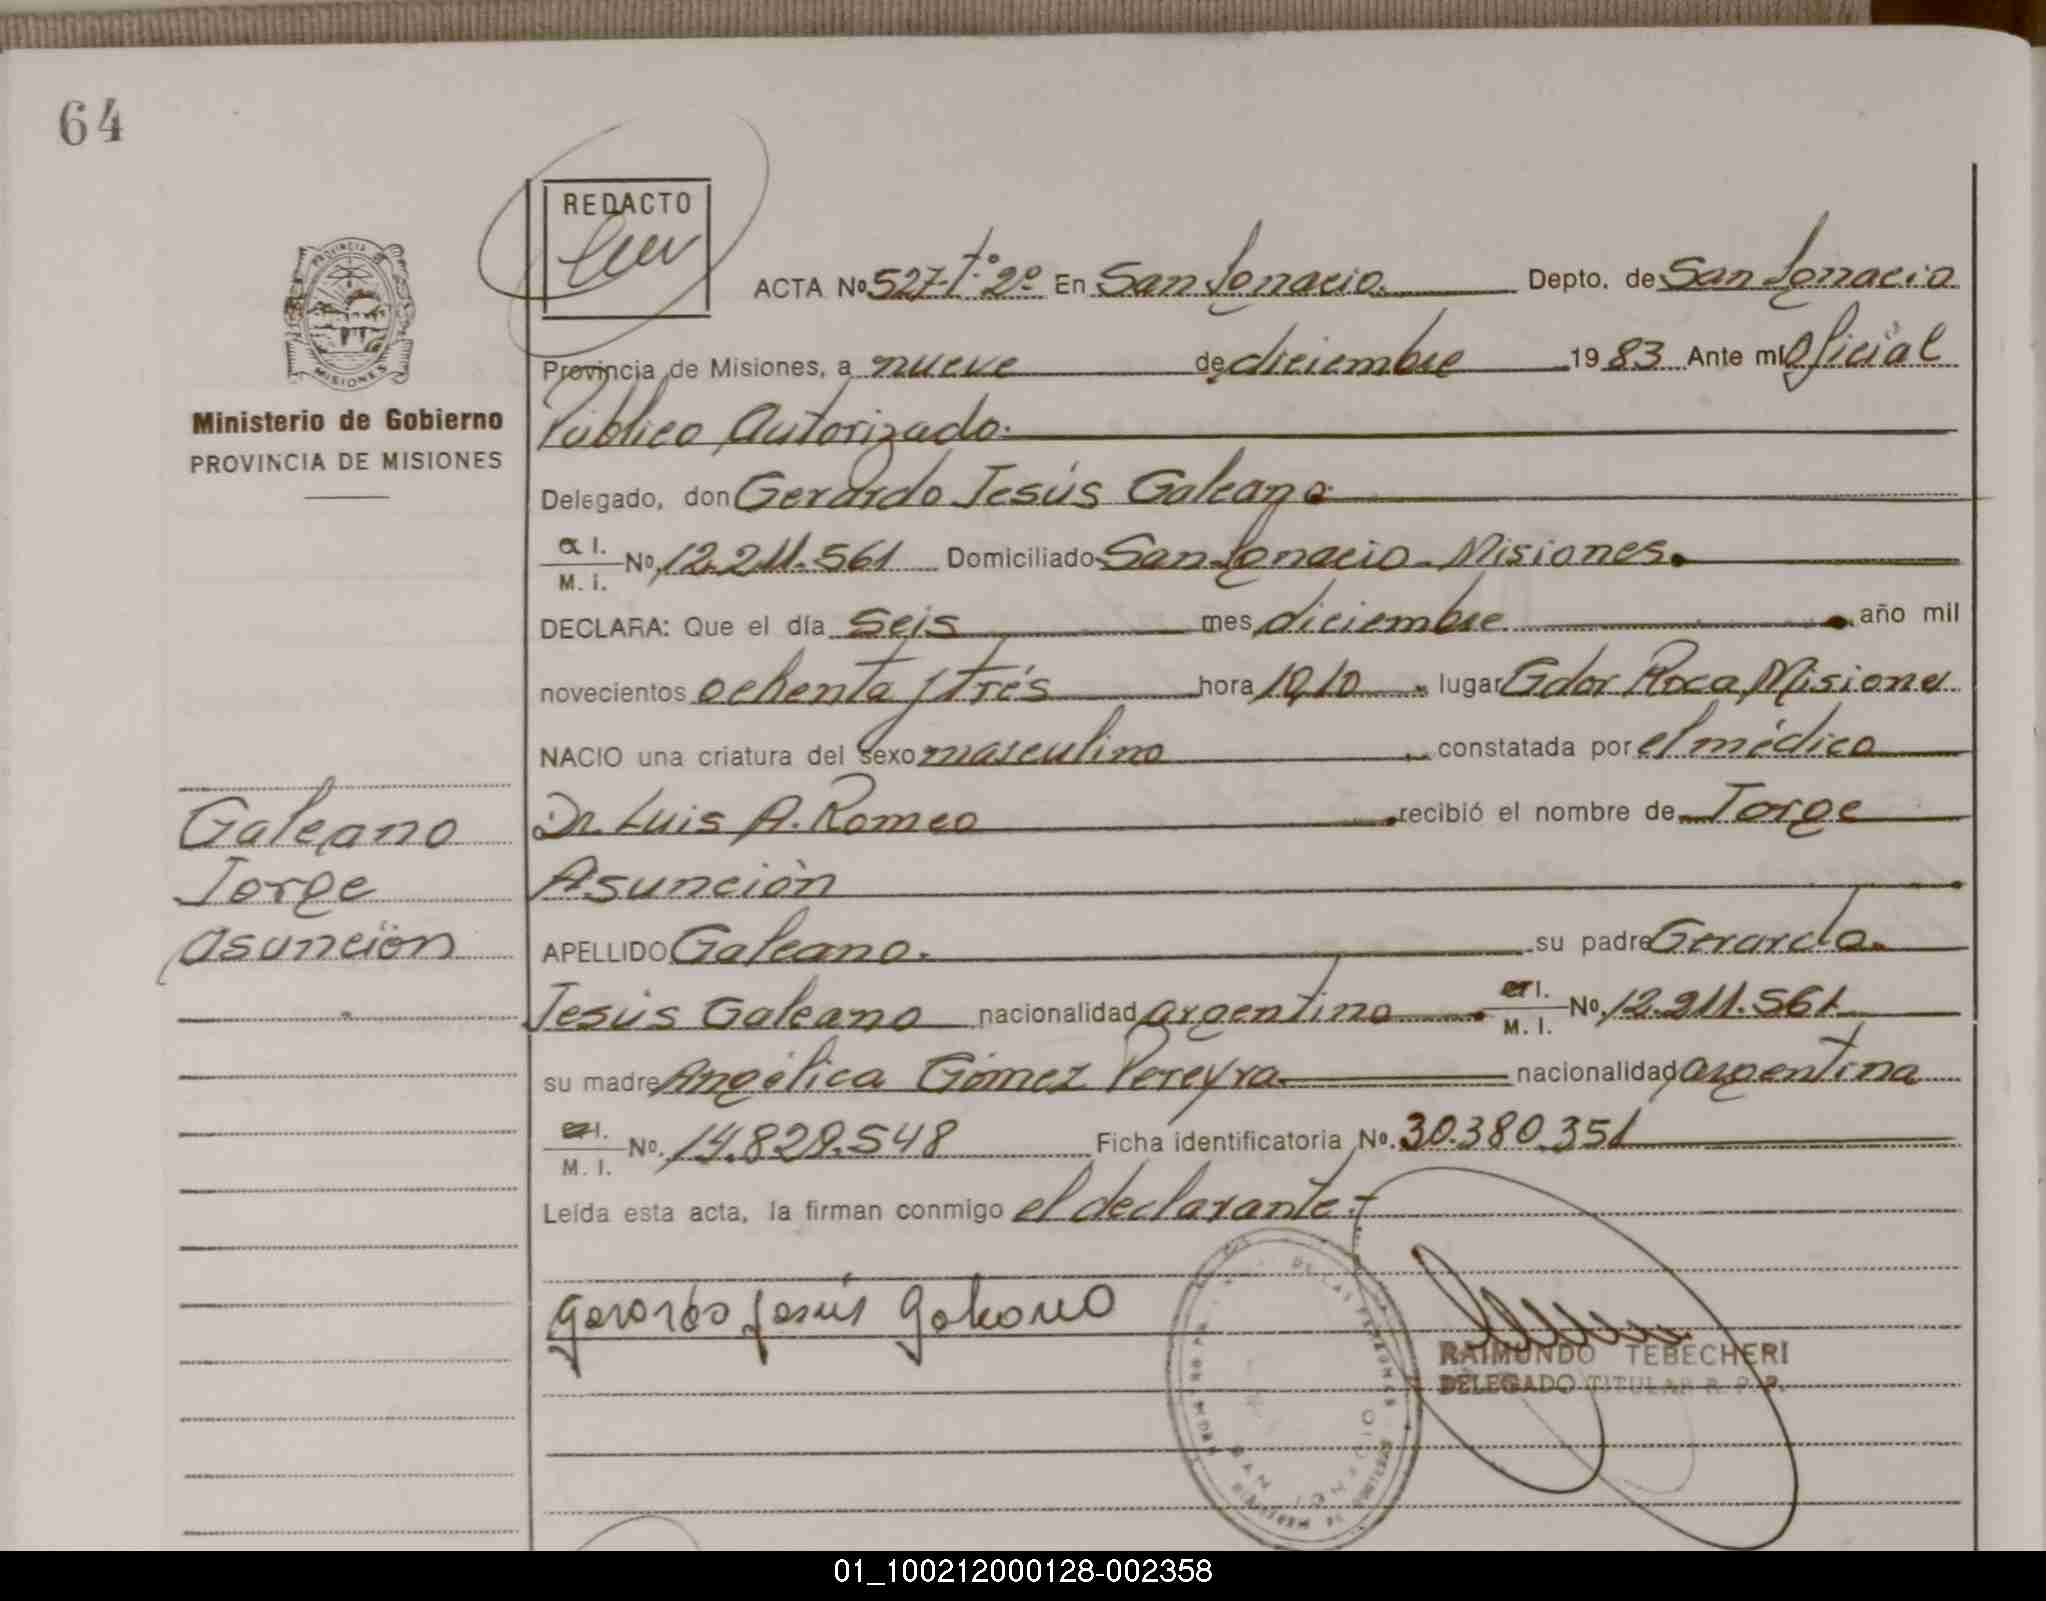 64
REDACTO
ACTA No 527-t.º 2º En San Ignacio. Depto. de San Ignacio
Provincia de Misiones, a nueve de diciembre 1983 Ante mí Oficial
Público Autorizado.
Delegado, don Gerardo Jesús Galeano
M. I. No 12.211.561 Domiciliado San Ignacio - Misiones.
DECLARA: Que el día seis mes diciembre año mil
novecientos ochenta y trés hora 10,10 lugar Gdor Roca Misiones
NACIO una criatura del sexo masculino constatada por el médico
Dr. Luis A. Romeo recibió el nombre de Jorge
Asunción
APELLIDO Galeano. su padre Gerardo
Jesús Galeano nacionalidad argentino M. I. No. 12.211.561
su madre Angélica Gómez Pereyra nacionalidad argentina
M. I. No. 14.829.548 Ficha identificatoria No. 30.380.351
Leída esta acta, la firman conmigo el declarante.-
Gerardo Jesús Galeano
RAIMUNDO TEBECHERI
DELEGADO TITULAR R. P. P.
PROVINCIA
MISIONES
Ministerio de Gobierno
PROVINCIA DE MISIONES
Galeano
Jorge
Asunción
DE LAS PERSONAS
SAN IGNACIO
01_100212000128-002358